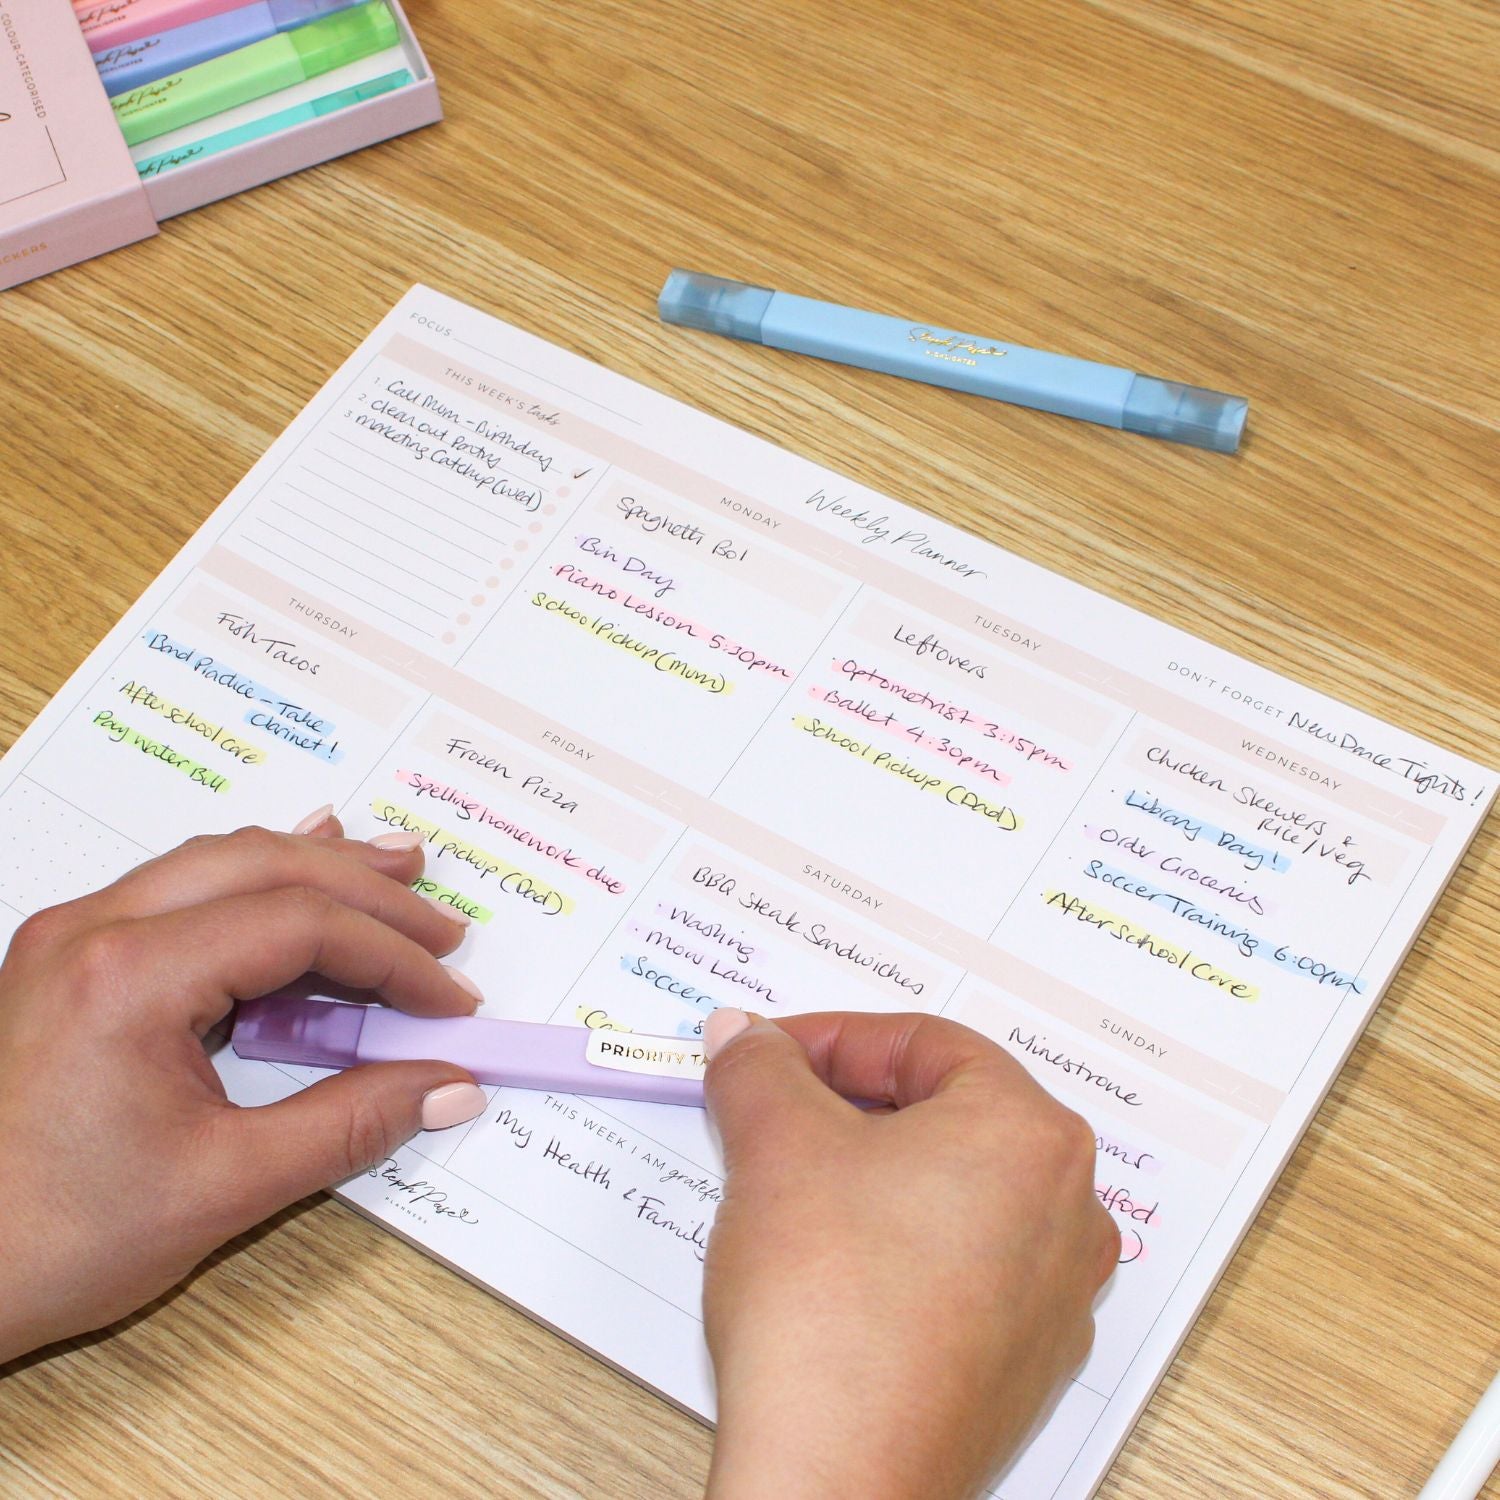 COLOUR-CATEGORISED
Steph Pase
HIGHLIGHTER
Steph Pase
HIGHLIGHTER
Steph Pase
HIGHLIGHTER
Steph Pase
Steph Pase
HIGHLIGHTER
FOCUS
Weekly Planner
DON'T FORGET New Dance Tights!
THIS WEEK'S tasks
1. Call Mum - Birthday ✓
2. Clean out Pantry
3 Marketing Catchup (Wed)
MONDAY
Spaghetti Bol
· Bin Day
· Piano Lesson 5:30pm
· School Pickup (Mum)
TUESDAY
Leftovers
· Optometrist 3:15pm
· Ballet 4:30pm
· School Pickup (Dad)
WEDNESDAY
Chicken Skewers &
Rice/Veg
· Library Day!
· Order Groceries
· Soccer Training 6:00pm
· After School Care
THURSDAY
Fish Tacos
· Band Practice - Take
Clarinet!
· After School Care
· Pay Water Bill
FRIDAY
Frozen Pizza
· Spelling homework due
· School Pickup (Dad)
due
SATURDAY
BBQ Steak Sandwiches
· Washing
· Mow Lawn
· Soccer -
SUNDAY
Minestrone
PRIORITY
THIS WEEK I AM grateful
My Health & Family
Steph Pase
PLANNERS